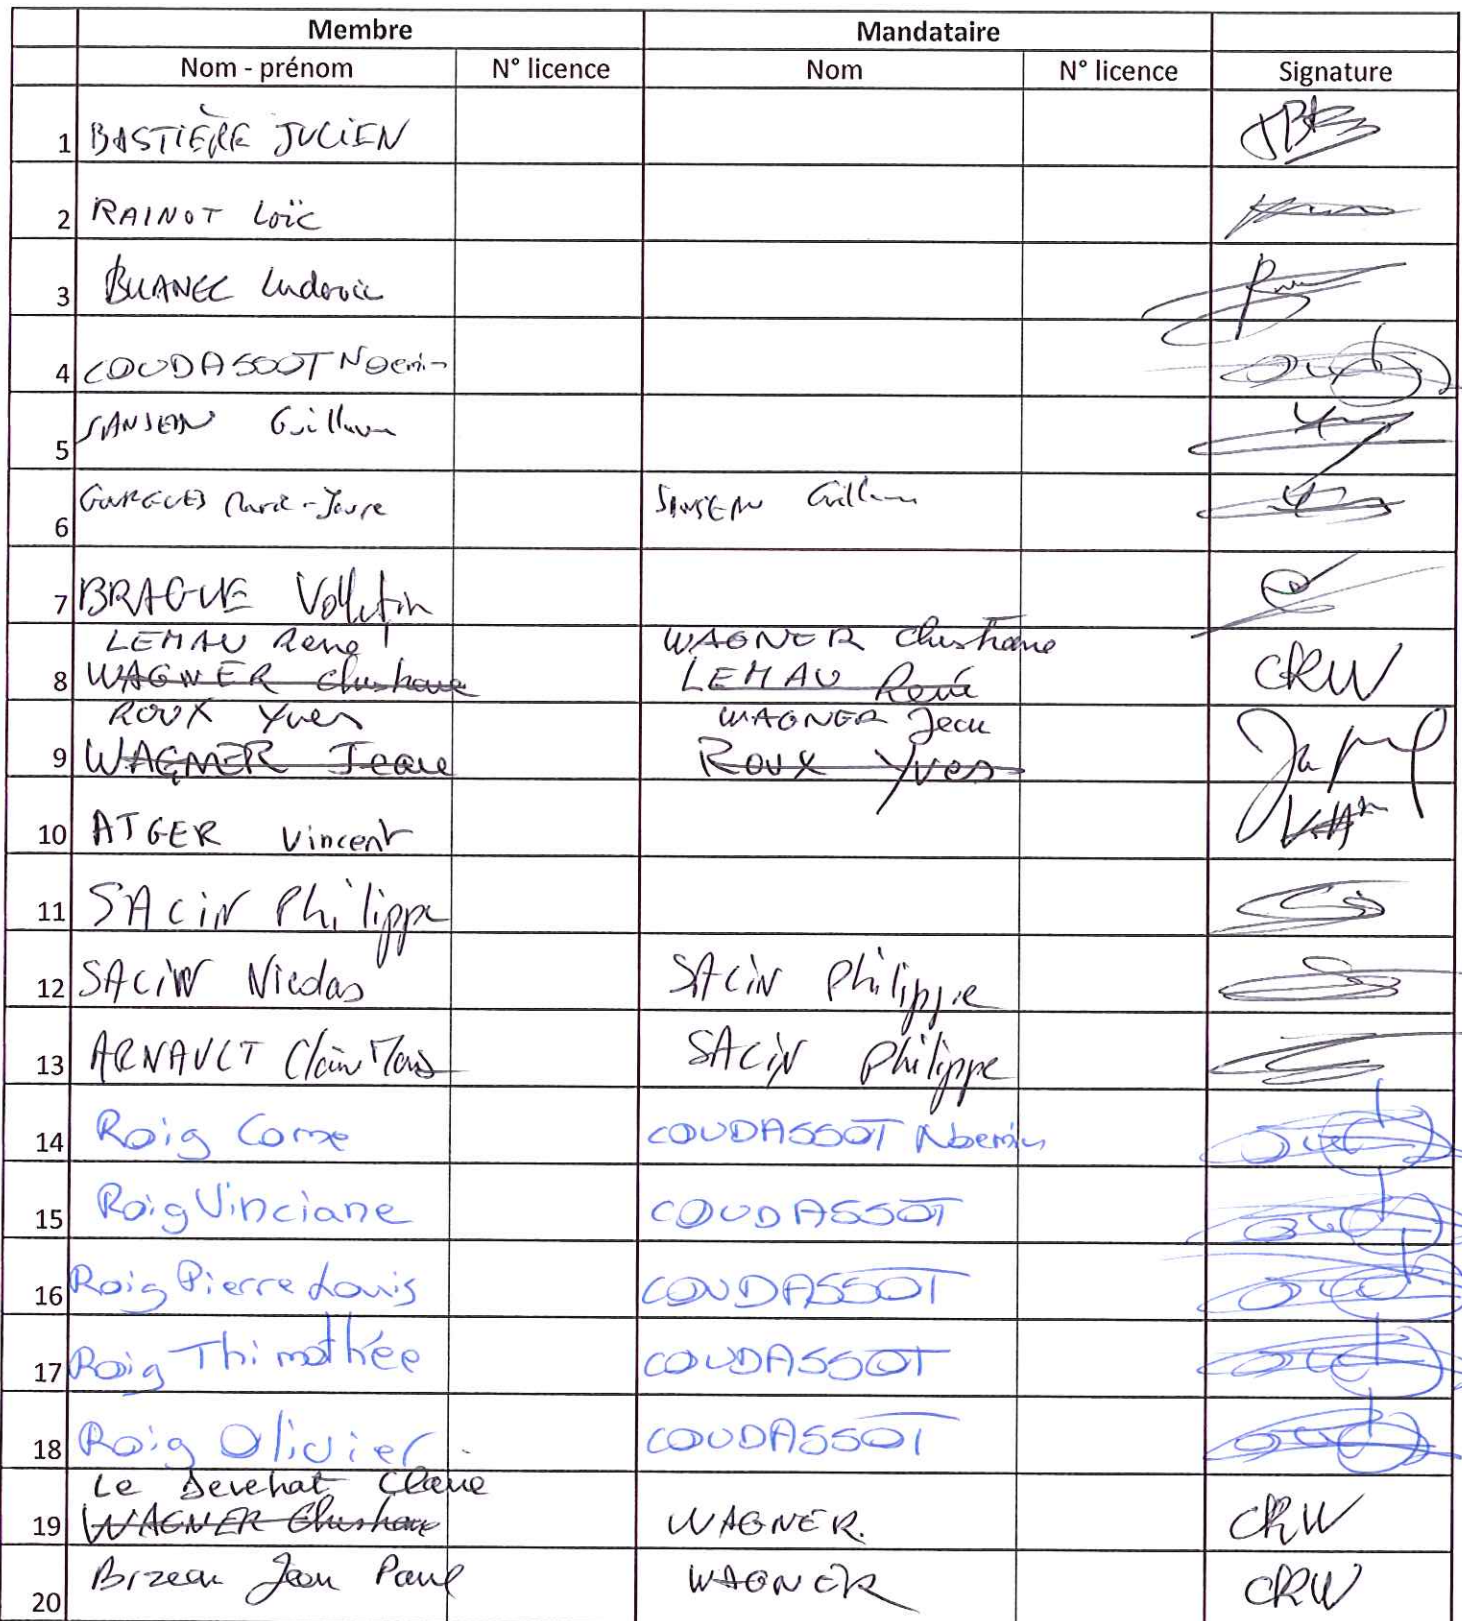 Membre Mandataire
Nom - prénom N° licence Nom N° licence Signature
1 BASTIÈRE JULIEN
2 RAINOT Loïc
3 BUANEC Ludovic
4 COUDASSOT Noemin
5 SANSEN Guillaume
6 GOURGUES Marie - SANSEN Guillaume
7 BRAGUE
LEMAU René WAGNER Christiane
8 WAGNER Christiane LEMAU René CRW
ROUX Yves WAGNER Jean
9 WAGNER Jean ROUX Yves
10 ATGER Vincent
11 SACIN Philippe
12 SACIN Nicolas SACIN Philippe
13 ARNAULT SACIN Philippe
14 Roig Come COUDASSOT Noemin
15 Roig Vinciane COUDASSOT
16 Roig Pierre Louis COUDASSOT
17 Roig Thimothée COUDASSOT
18 Roig Olivier COUDASSOT
Le Devehat Claire
19 WAGNER Christiane WAGNER. CRW
20 Brzeau Jean Paul WAGNER CRW